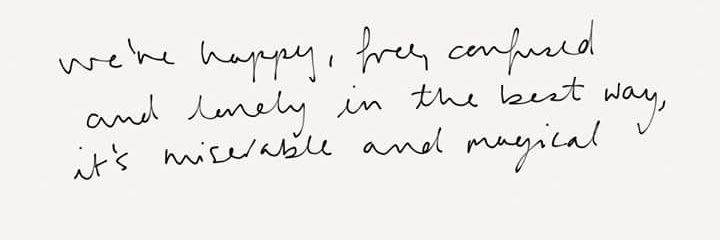 we're happy, free, confused
and lonely in the best way,
it's miserable and magical